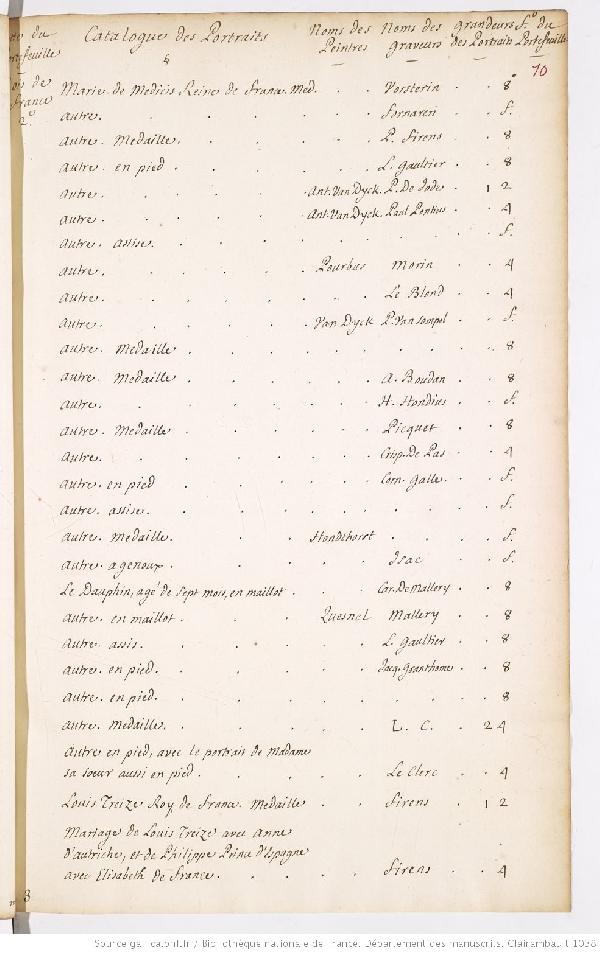 Catalogue des Portraits Noms des Peintres Noms des graveurs grandeurs des Portraits f.º du Portefeuille
70
Marie de Medicis Reine de France. Med. Vorsterin 8º
autre. Fornareri f.
autre. Medaille. P. Firens 8
autre. en pied. L. gaultier 8
autre. Ant. Van Dyck. P. De Jode. 12
autre. Ant. Van Dyck. Paul Pontius. 4
autre. assise. f.
autre. Pourbus Morin 4
autre. Le Blond 4
autre. Van Dyck P. Van Sompel f.
autre. Medaille 8
autre. Medaille A. Boudan 8
autre. H. Hondius f.
autre. Medaille Picquet 8
autre. Crisp. De Pas 4
autre. en pied Corn. Galle. f.
autre. assise. f.
autre. Medaille. Hondthorst f.
autre. agenoux. Isac f.
Le Dauphin, agé de sept mois, en maillot. Car. De Mallery 8
autre. en maillot. Quesnel Mallery 8
autre. assis. L. gaultier 8
autre. en pied. Jacq. Granthome 8
autre. en pied. 8
autre. Medaille. L. C. 24
autre en pied, avec le portrait de Madame
sa soeur aussi en pied. Le Clerc 4
Louis Treize Roy de France. Medaille Firens 12
Mariage de Louis Treize avec Anne
d'autriche, et de Philippe Prince d'Espagne
avec Elisabeth de France. Firens 4
3
Source gallica.bnf.fr / Bibliothèque nationale de France. Département des manuscrits. Clairambault 1038